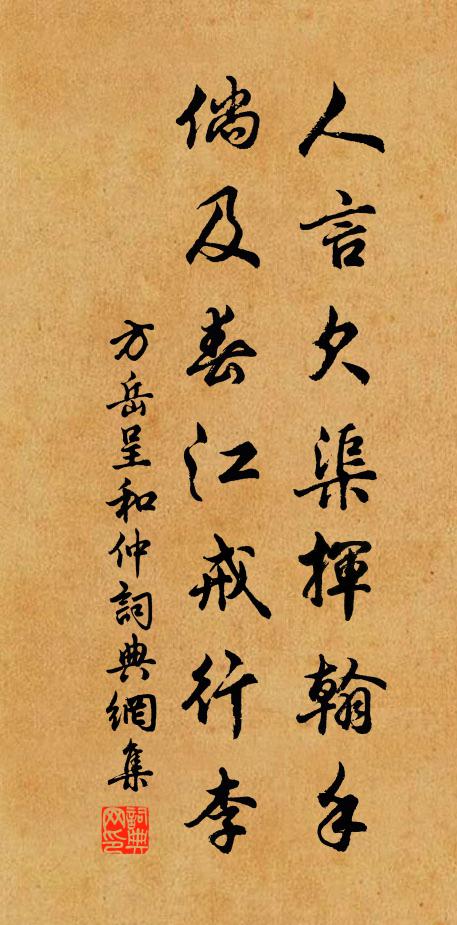 人言欠渠揮翰手
倘及春江戒行李
方岳呈和仲詞典網集
詞典网印